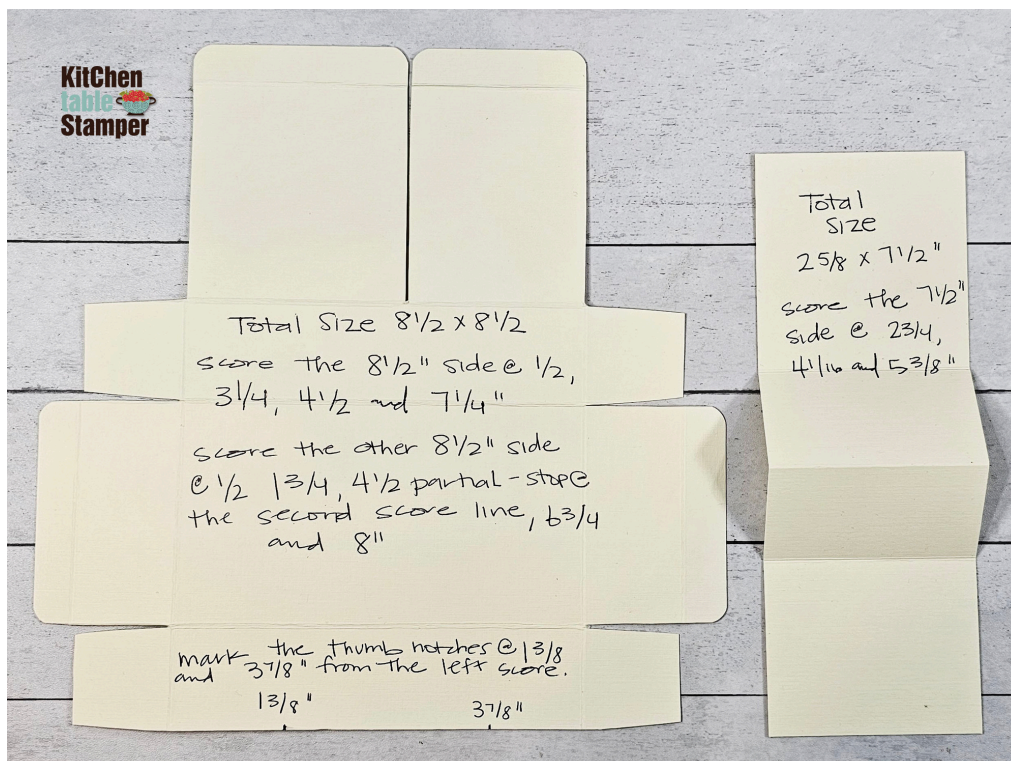 KitChen
table
Stamper
Total Size 8 1/2 x 8 1/2
score the 8 1/2" side @ 1/2,
3 1/4, 4 1/2 and 7 1/4"
score the other 8 1/2" side
@ 1/2 1 3/4, 4 1/2 partial-stop @
the second score line, 6 3/4
and 8"
mark the thumb notches @ 1 3/8
and 3 7/8" from the left score.
1 3/8"
3 7/8"
Total
Size
2 5/8 x 7 1/2"
score the 7 1/2"
side @ 2 3/4,
4 1/16 and 5 3/8"